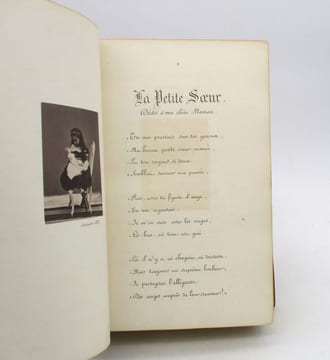 1
La Petite Sœur.
Dédié à ma chère Maman.
Tu me prenais sur tes genoux,
Ma bonne petite sœur aimée,
Et ton regard si doux
Semblait, sonder ma pensée.
Puis, avec ta figure d'ange,
Tu me regardais
Je m'en vais avec les anges,
Là-bas, où tout est gai.
Où il n'y a, ni chagrins, ni tristesse,
Mais toujours un suprême bonheur,
Je partagerai l'allégresse
Des anges auprès de leur Sauveur!